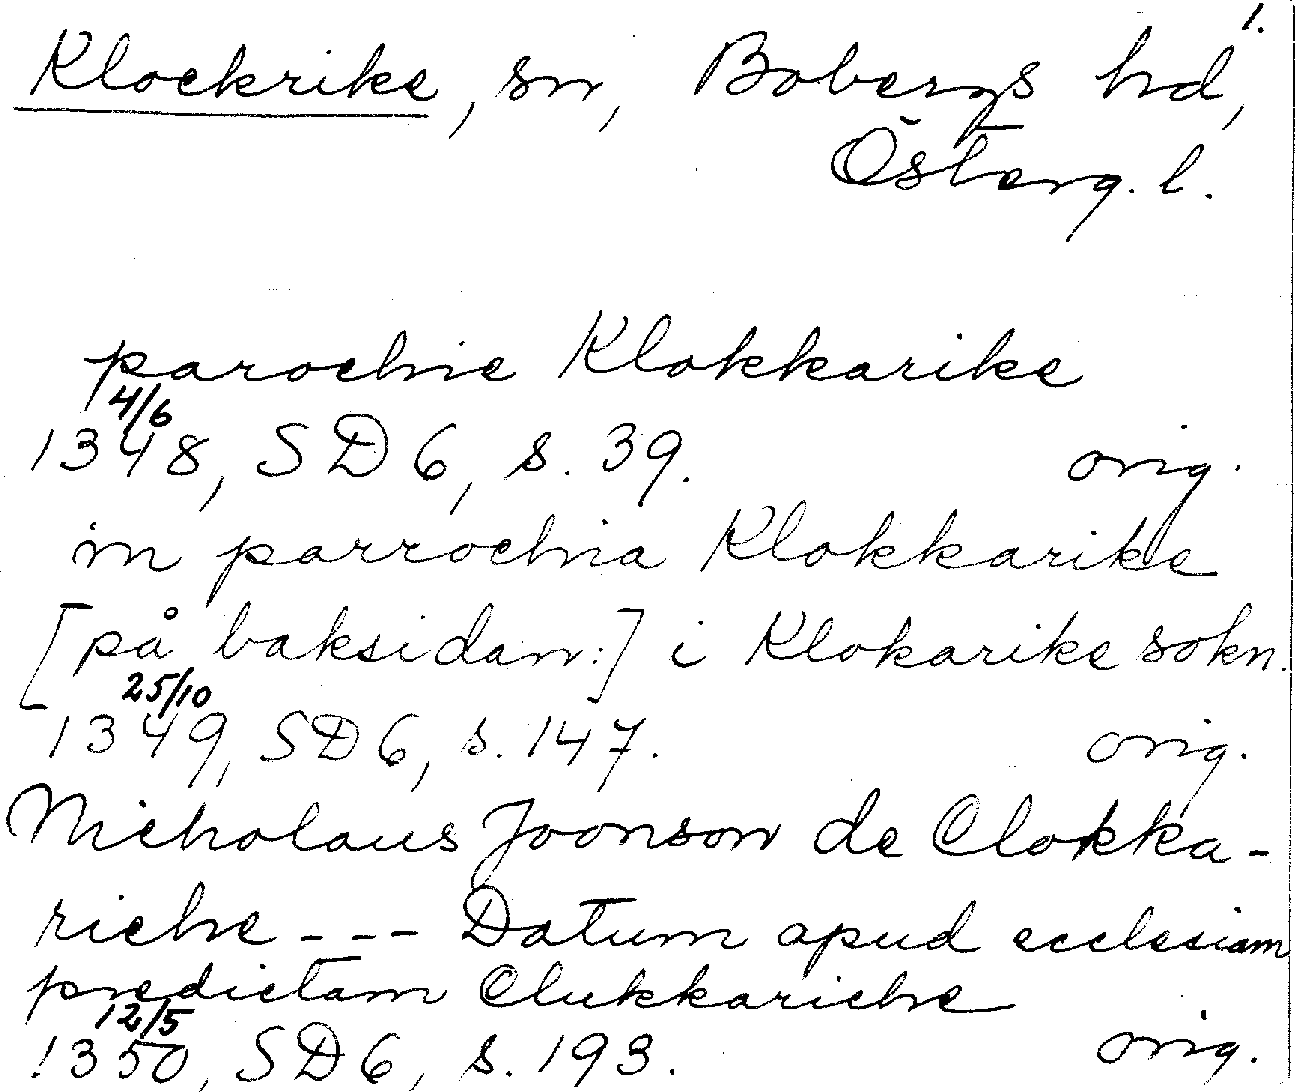 1.
Klockrike, sn, Bobergs hd,
Österg. l.
parochie Klokkarike
4/6
1348, SD 6, s. 39. orig.
in parrochia Klokkarike
[på baksidan:] i Klokarike sokn.
25/10
1349, SD 6, s. 147. orig.
Nicholaus Joonson de Clokka-
riche --- Datum apud ecclesiam
predictam Clukkariche
12/5
1350, SD 6, s. 193. orig.